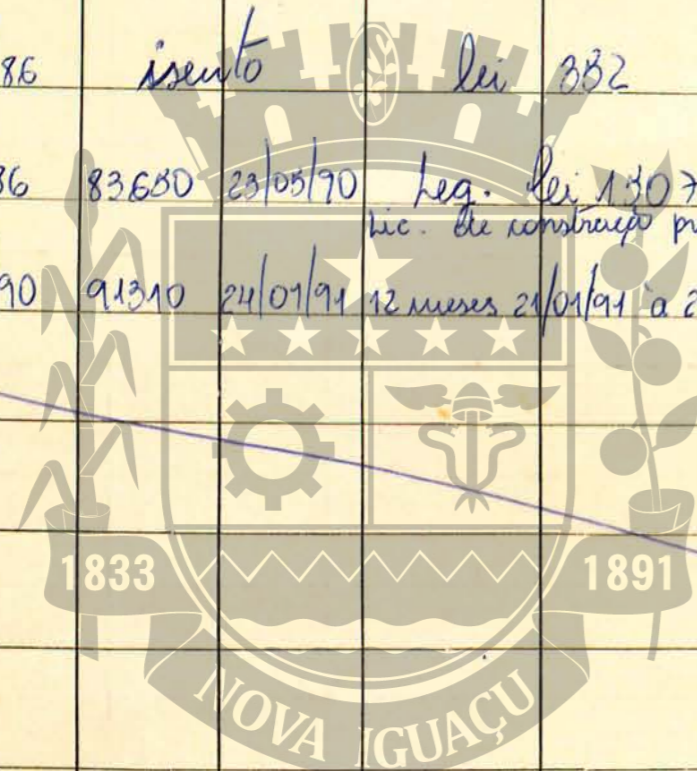 86 isento lei 332
86 83650 23/05/90 Leg. lei 1307
Lic. de construção pr
90 91310 24/01/91 12 meses 21/01/91 à 2
1833 1891
NOVA IGUAÇU